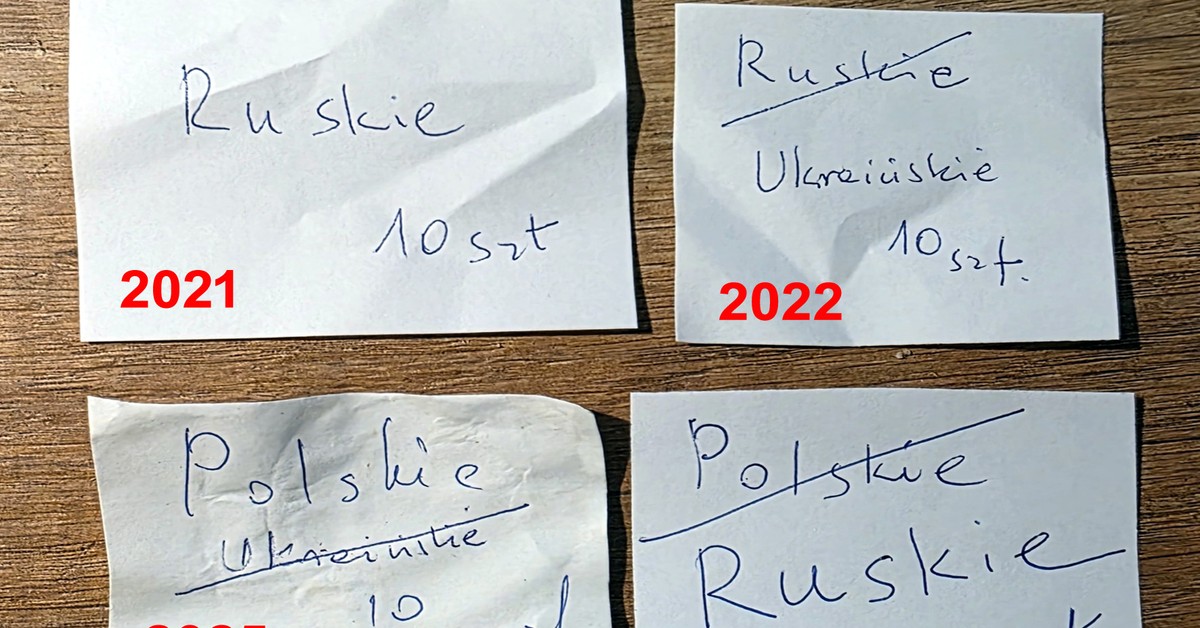 Ruskie
10 szt
2021
Ruskie
Ukraińskie
10 szt.
2022
Polskie
Ukraińskie
10
Polskie
Ruskie